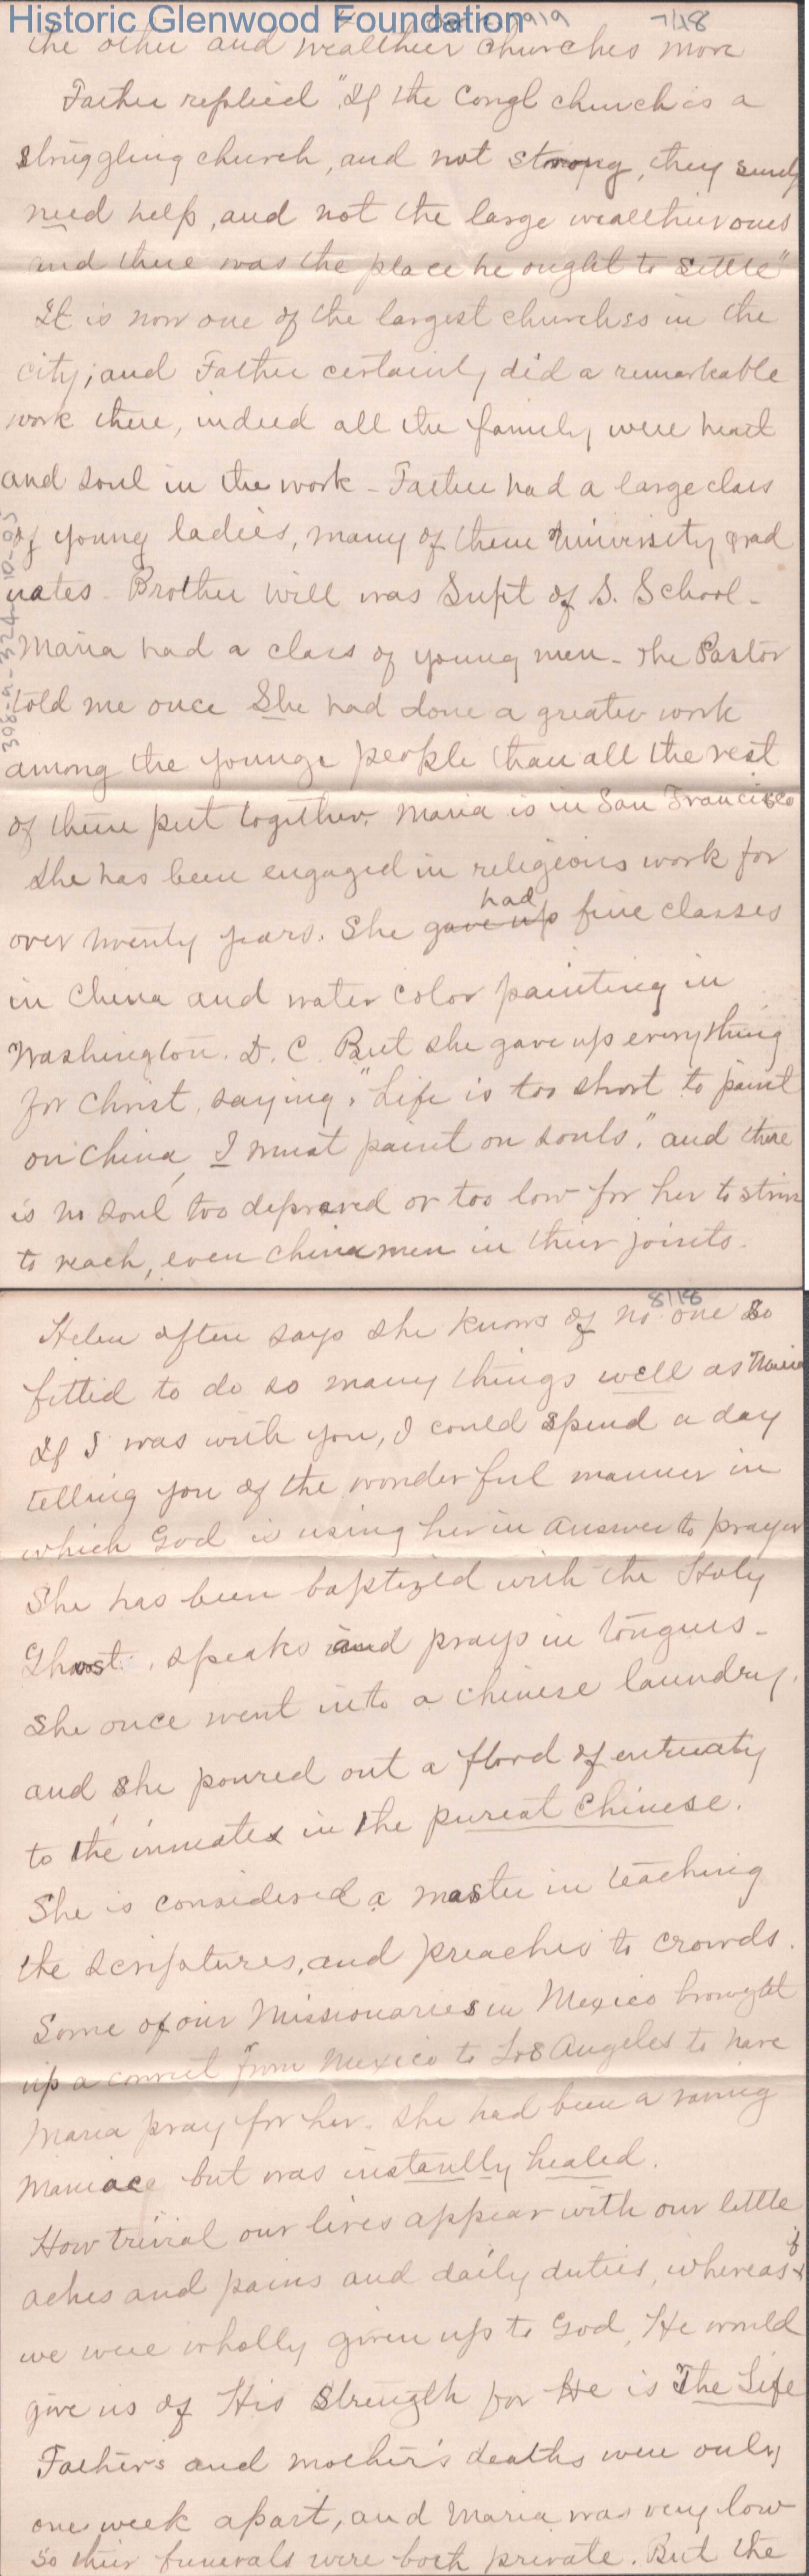 Historic Glenwood Foundation
1919 7/18
the other and wealthier churches more
Father replied "If the Congl church is a
struggling church, and not strong, they surely
need help, and not the large wealthier ones
and there was the place he ought to settle"
It is now one of the largest churches in the
city; and Father certainly did a remarkable
work there, indeed all the family were heart
and soul in the work - Father had a large class
of young ladies, many of them University grad
uates - Brother Will was Supt of S. School -
Maria had a class of young men - The Pastor
told me once She had done a greater work
among the younge people than all the rest
of them put together. Maria is in San Francisco
She has been engaged in religious work for
had
over twenty years. She gave up fine classes
in China and water color painting in
Washington. D. C. But she gave up everything
for Christ, saying, "Life is too short to paint
on China, I must paint on souls," and there
is no soul too depraved or too low for her to strive
to reach, even chinamen in their joints.
398-a-324-10-05
8/18
Helen often says she knows of no one so
fitted to do so many things well as Maria
If I was with you, I could spend a day
telling you of the wonderful manner in
which God is using her in answer to prayer
She has been baptized with the Holy
Ghost, speaks and prays in tongues -
She once went into a chinese laundry,
and she poured out a flood of entreaty
to the inmates in the purest Chinese.
She is considered a master in teaching
the scriptures, and preaches to crowds.
Some of our Missionaries in Mexico brought
up a convert from Mexico to Los Angeles to have
Maria pray for her. She had been a raving
maniace but was instantly healed.
How trivial our lives appear with our little
aches and pains and daily duties, whereas if
we were wholly given up to God, He would
give us of His Strength for He is The Life
Father's and mother's deaths were only
one week apart, and Maria was very low
so their funerals were both private. But the